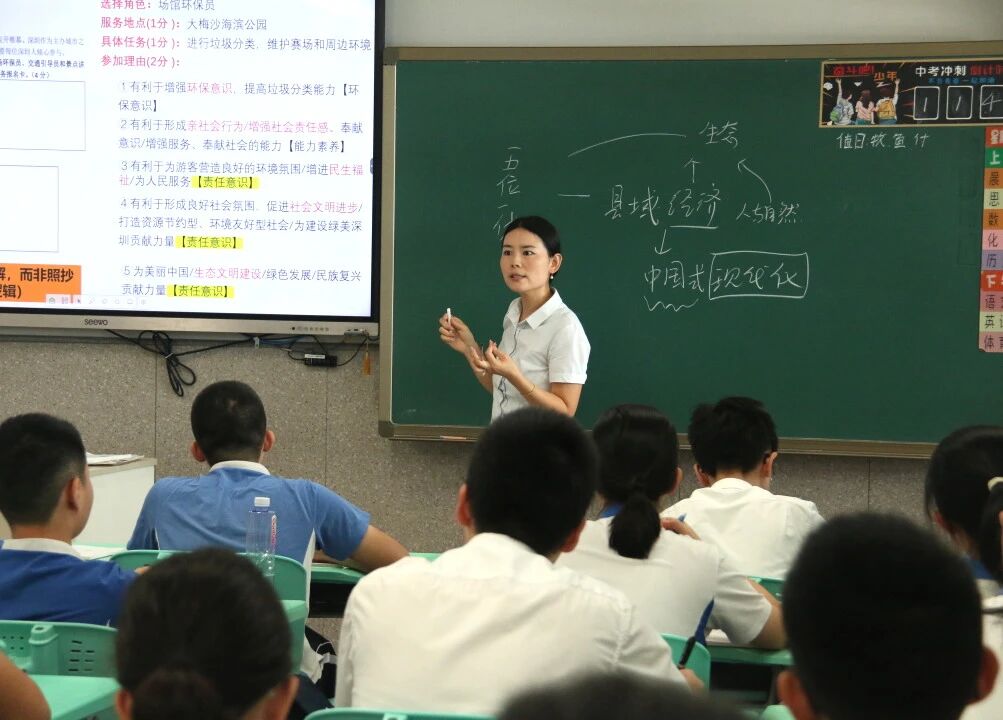 选择角色：场馆环保员
服务地点(1分)：大梅沙海滨公园
具体任务(1分)：进行垃圾分类、维护赛场和周边环境
参加理由(2分)：
1有利于增强环保意识、提高垃圾分类能力【环
保意识】
2有利于形成亲社会行为/增强社会责任感、奉献
意识/增强服务、奉献社会的能力【能力素养】
3有利于为游客营造良好的环境氛围/增进民生福
祉/为人民服务【责任意识】
4有利于形成良好社会氛围、促进社会文明进步/
打造资源节约型、环境友好型社会/为建设绿美深
圳贡献力量【责任意识】
5为美丽中国/生态文明建设/绿色发展/民族复兴
贡献力量【责任意识】
务报名卡。(4分)
解，而非照抄
逻辑)
seewo
生态
五位一体
县域经济
人与自然
中国式现代化
奋斗吧！少年
中考冲刺 倒计时
114
值日:
上
晨
思
数
化
历
下
语
英语
体